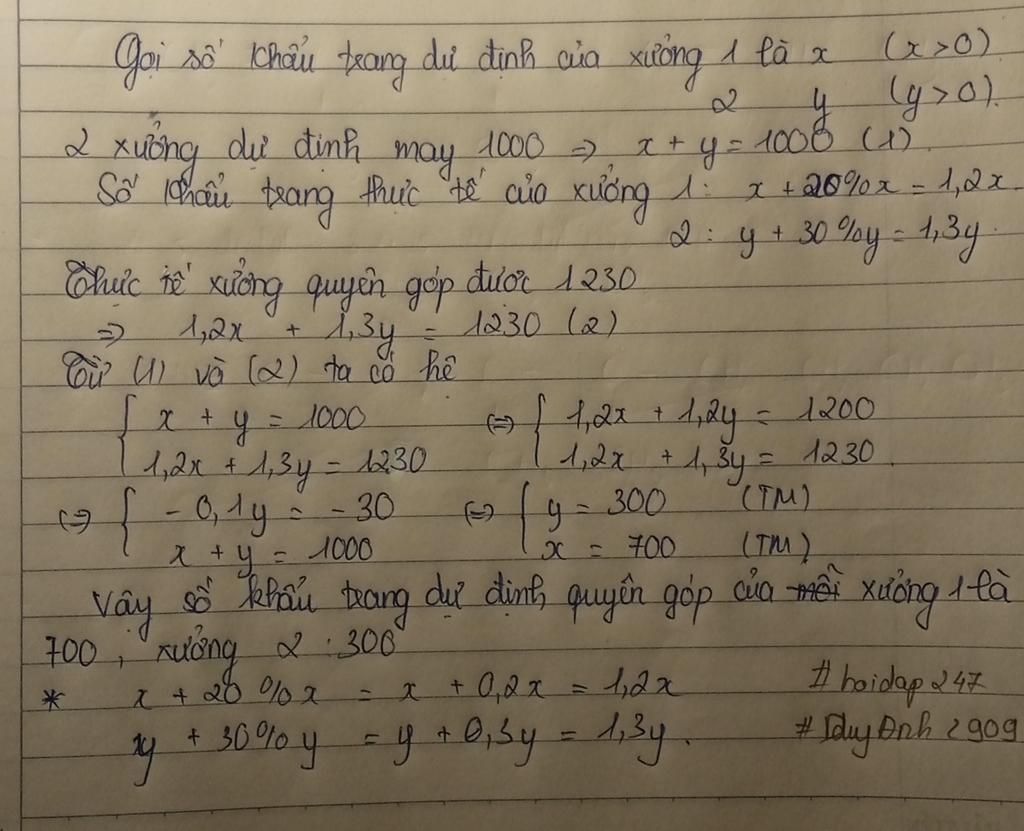 Gọi số khẩu trang dự định của xưởng 1 là x (x>0)
2 y (y>0).
2 xưởng dự định may 1000 => x + y = 1000 (1)
Số khẩu trang thực tế của xưởng 1: x + 20%x = 1,2x.
2: y + 30%y = 1,3y.
Thực tế xưởng quyên góp được 1230
=> 1,2x + 1,3y = 1230 (2)
Từ (1) và (2) ta có hệ
{ x + y = 1000 <=> { 1,2x + 1,2y = 1200
1,2x + 1,3y = 1230 1,2x + 1,3y = 1230
<=> { -0,1y = -30 <=> { y = 300 (TM)
x + y = 1000 x = 700 (TM)
Vậy số khẩu trang dự định quyên góp của mỗi xưởng 1 là
700, xưởng 2 : 300
* x + 20%x = x + 0,2x = 1,2x #hoidap247
y + 30%y = y + 0,3y = 1,3y. #DuyAnh2909